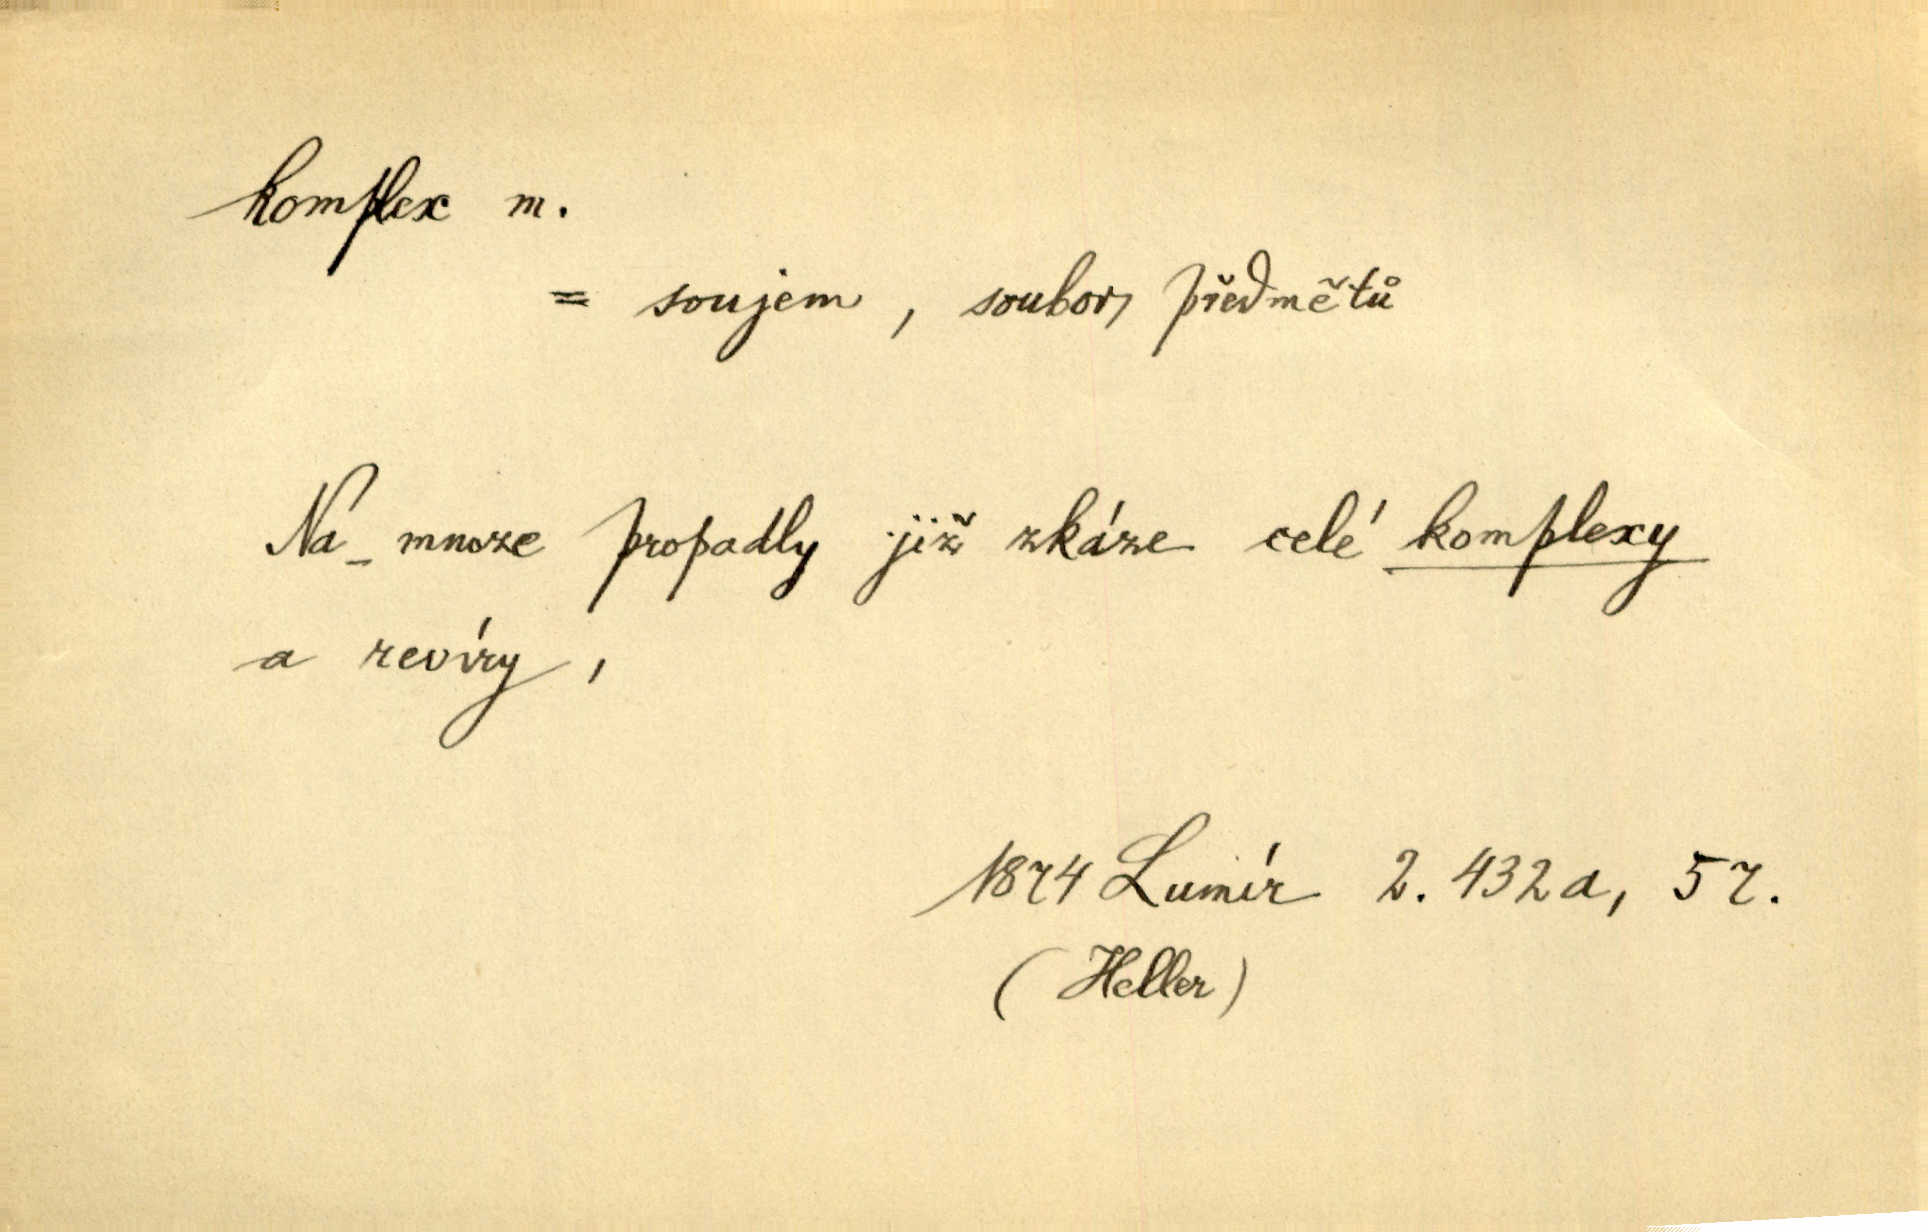 komplex m.
= soujem, soubor, předmětů
Ná_mnoze propadly již zkáze celé komplexy
a revíry,
1874 Lumír 2. 432a, 57.
(Heller)